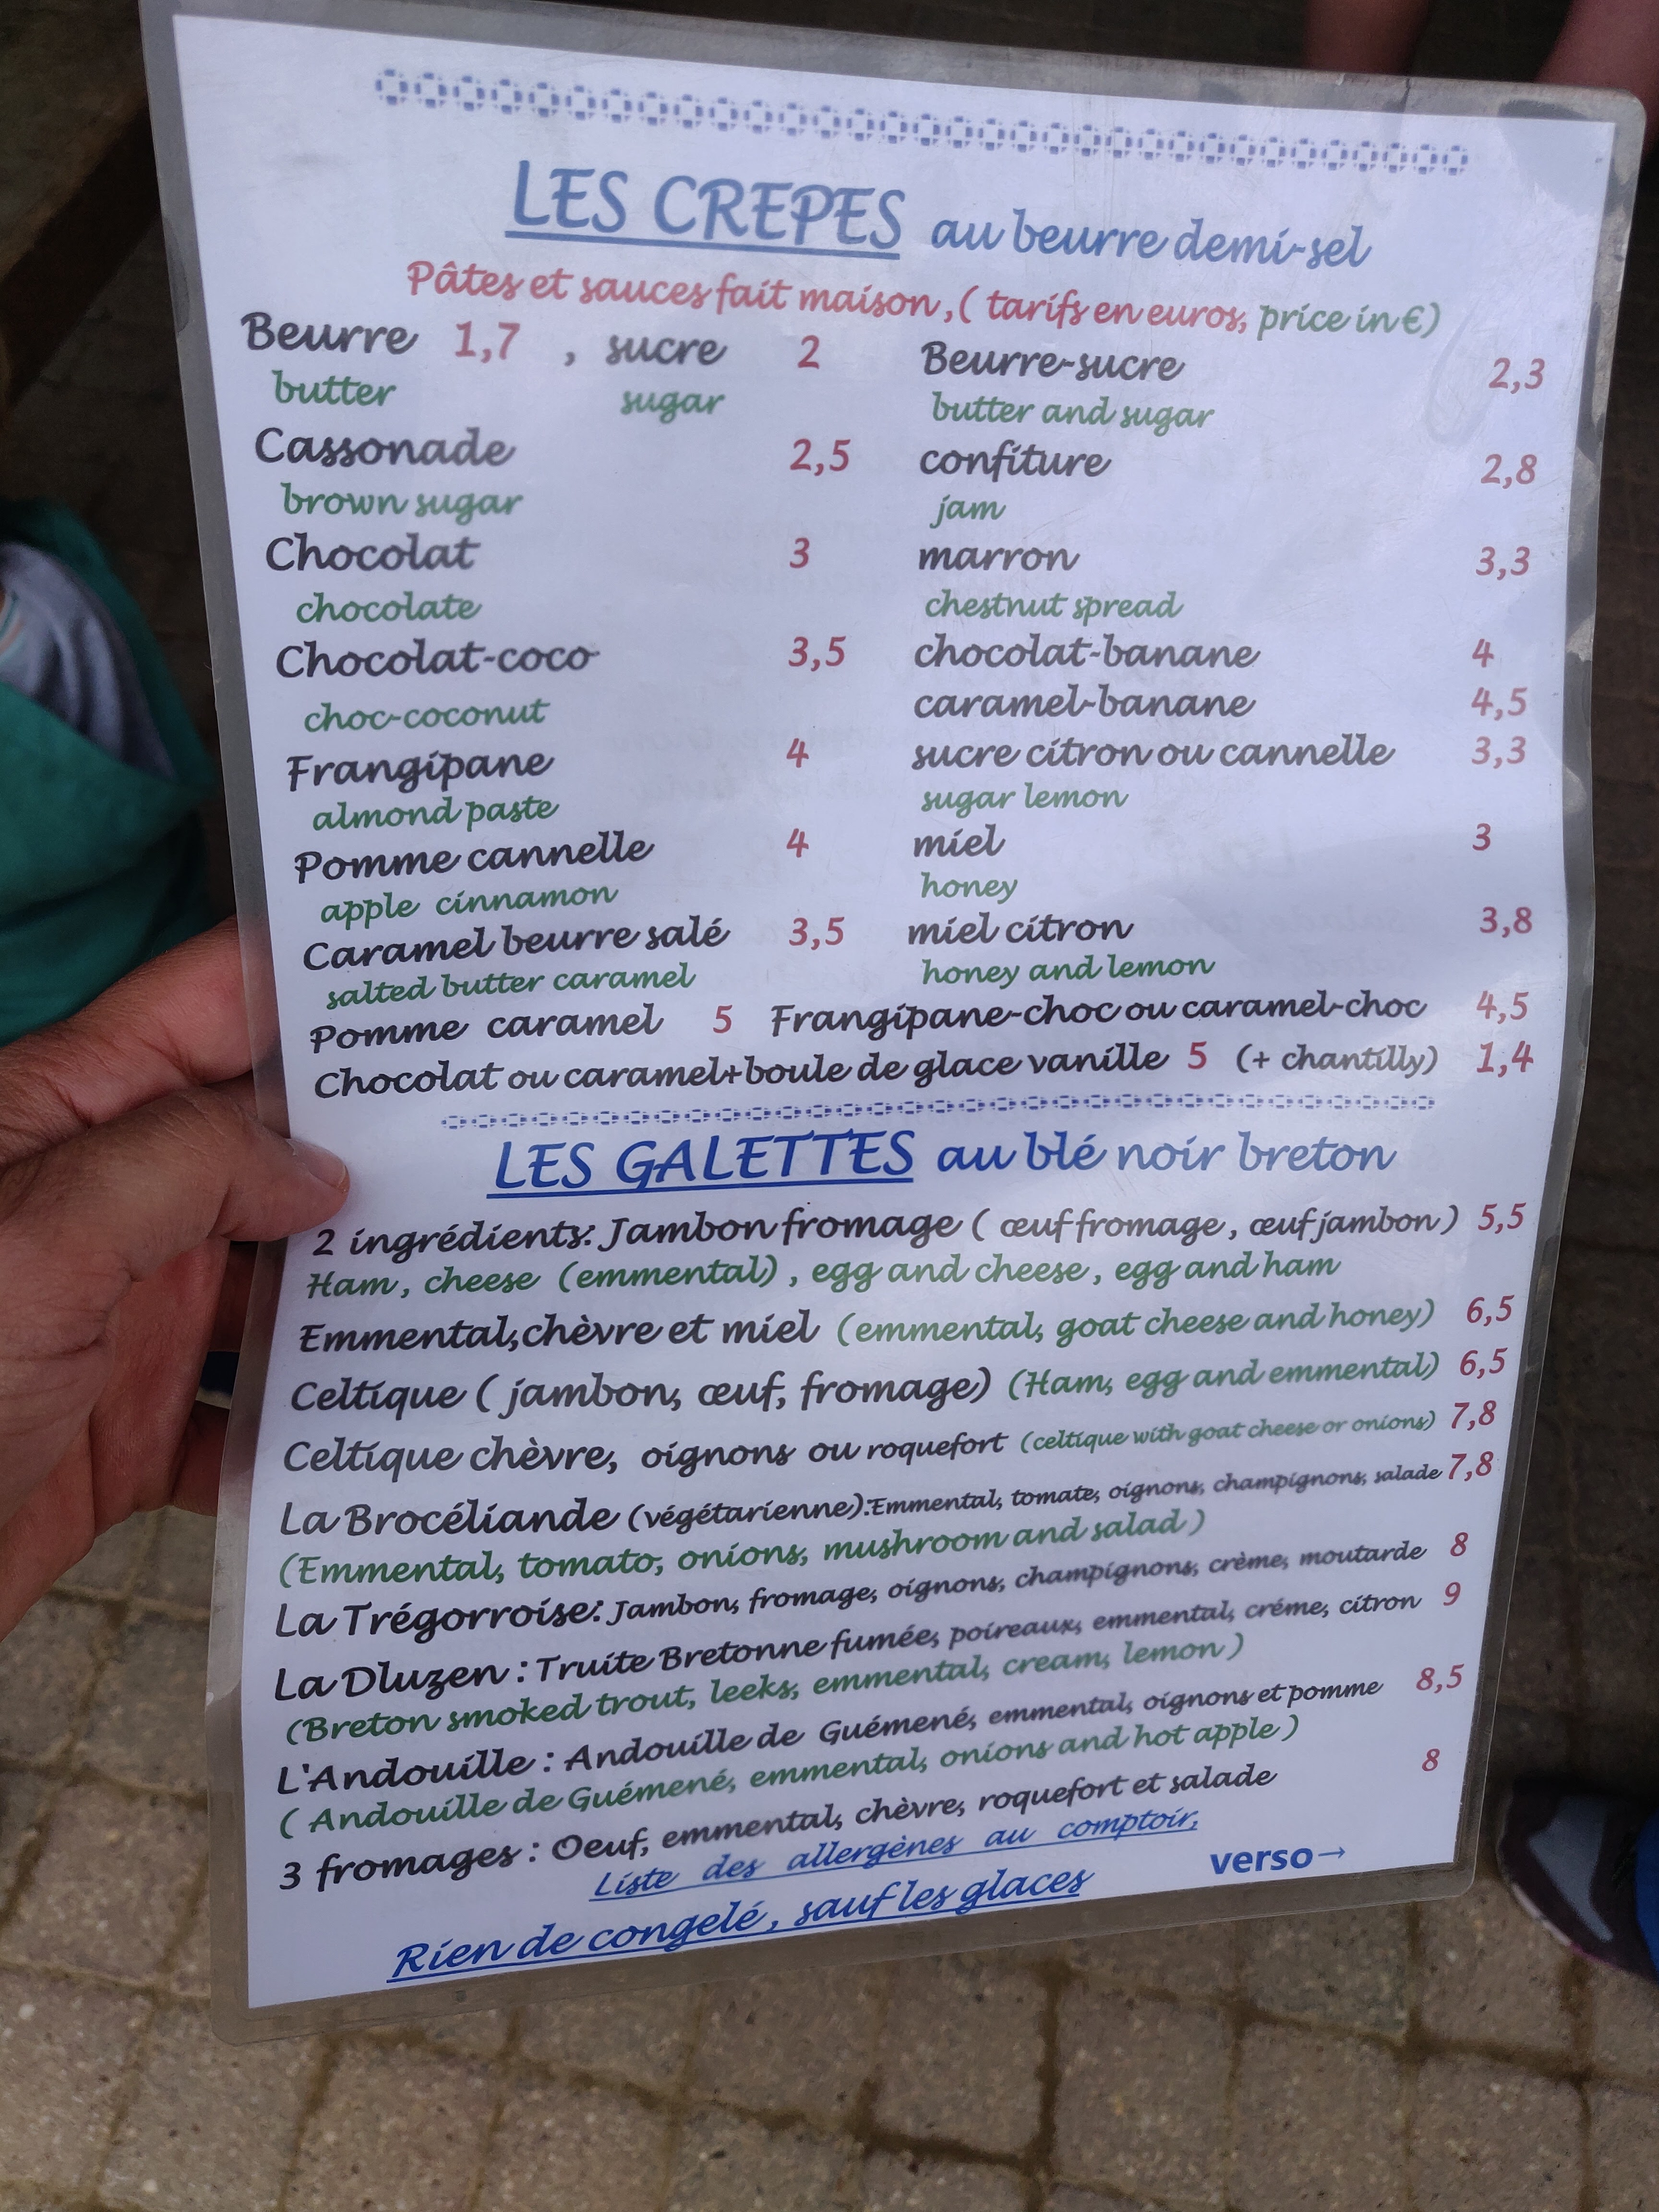 LES CREPES au beurre demi-sel
Pâtes et sauces fait maison, ( tarifs en euros, price in €)
Beurre 1,7 , sucre 2 Beurre-sucre 2,3
butter sugar butter and sugar
Cassonade 2,5 confiture 2,8
brown sugar jam
Chocolat 3 marron 3,3
chocolate chestnut spread
Chocolat-coco 3,5 chocolat-banane 4
choc-coconut caramel-banane 4,5
Frangipane 4 sucre citron ou cannelle 3,3
almond paste sugar lemon
Pomme cannelle 4 miel 3
apple cinnamon honey
Caramel beurre salé 3,5 miel citron 3,8
salted butter caramel honey and lemon
Pomme caramel 5 Frangipane-choc ou caramel-choc 4,5
Chocolat ou caramel+boule de glace vanille 5 (+ chantilly) 1,4
LES GALETTES au blé noir breton
2 ingrédients: Jambon fromage ( œuf fromage , œuf jambon ) 5,5
Ham , cheese (emmental) , egg and cheese , egg and ham
Emmental,chèvre et miel (emmental, goat cheese and honey) 6,5
Celtique ( jambon, œuf, fromage) (Ham, egg and emmental) 6,5
Celtique chèvre, oignons ou roquefort (celtique with goat cheese or onions) 7,8
La Brocéliande (végétarienne):Emmental, tomate, oignons, champignons, salade 7,8
(Emmental, tomato, onions, mushroom and salad )
La Trégorroise: Jambon, fromage, oignons, champignons, crème, moutarde 8
La Dluzen : Truite Bretonne fumée, poireaux, emmental, créme, citron 9
(Breton smoked trout, leeks, emmental, cream, lemon )
L'Andouille : Andouille de Guémené, emmental, oignons et pomme 8,5
( Andouille de Guémené, emmental, onions and hot apple )
3 fromages : Oeuf, emmental, chèvre, roquefort et salade 8
Liste des allergènes au comptoir,
verso→
Rien de congelé , sauf les glaces